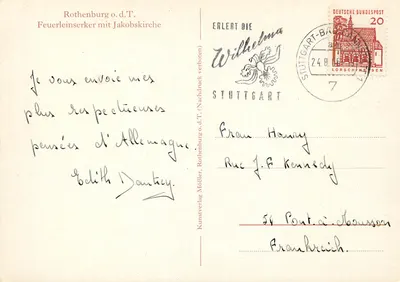 Rothenburg o. d. T.
Feuerleinserker mit Jakobskirche
Je vous envoie mes
plus respectueuses
pensées d'Allemagne.
Edith
Kunstverlag Müller, Rothenburg o. d. T. (Nachdruck verboten)
ERLEBT DIE
Wilhelma
STUTTGART
STUTTGART-BAD
24.8
7
DEUTSCHE BUNDESPOST
20
Frau Henry
Rue J.F Kennedy
54 Pont-à-Mousson
Frankreich.